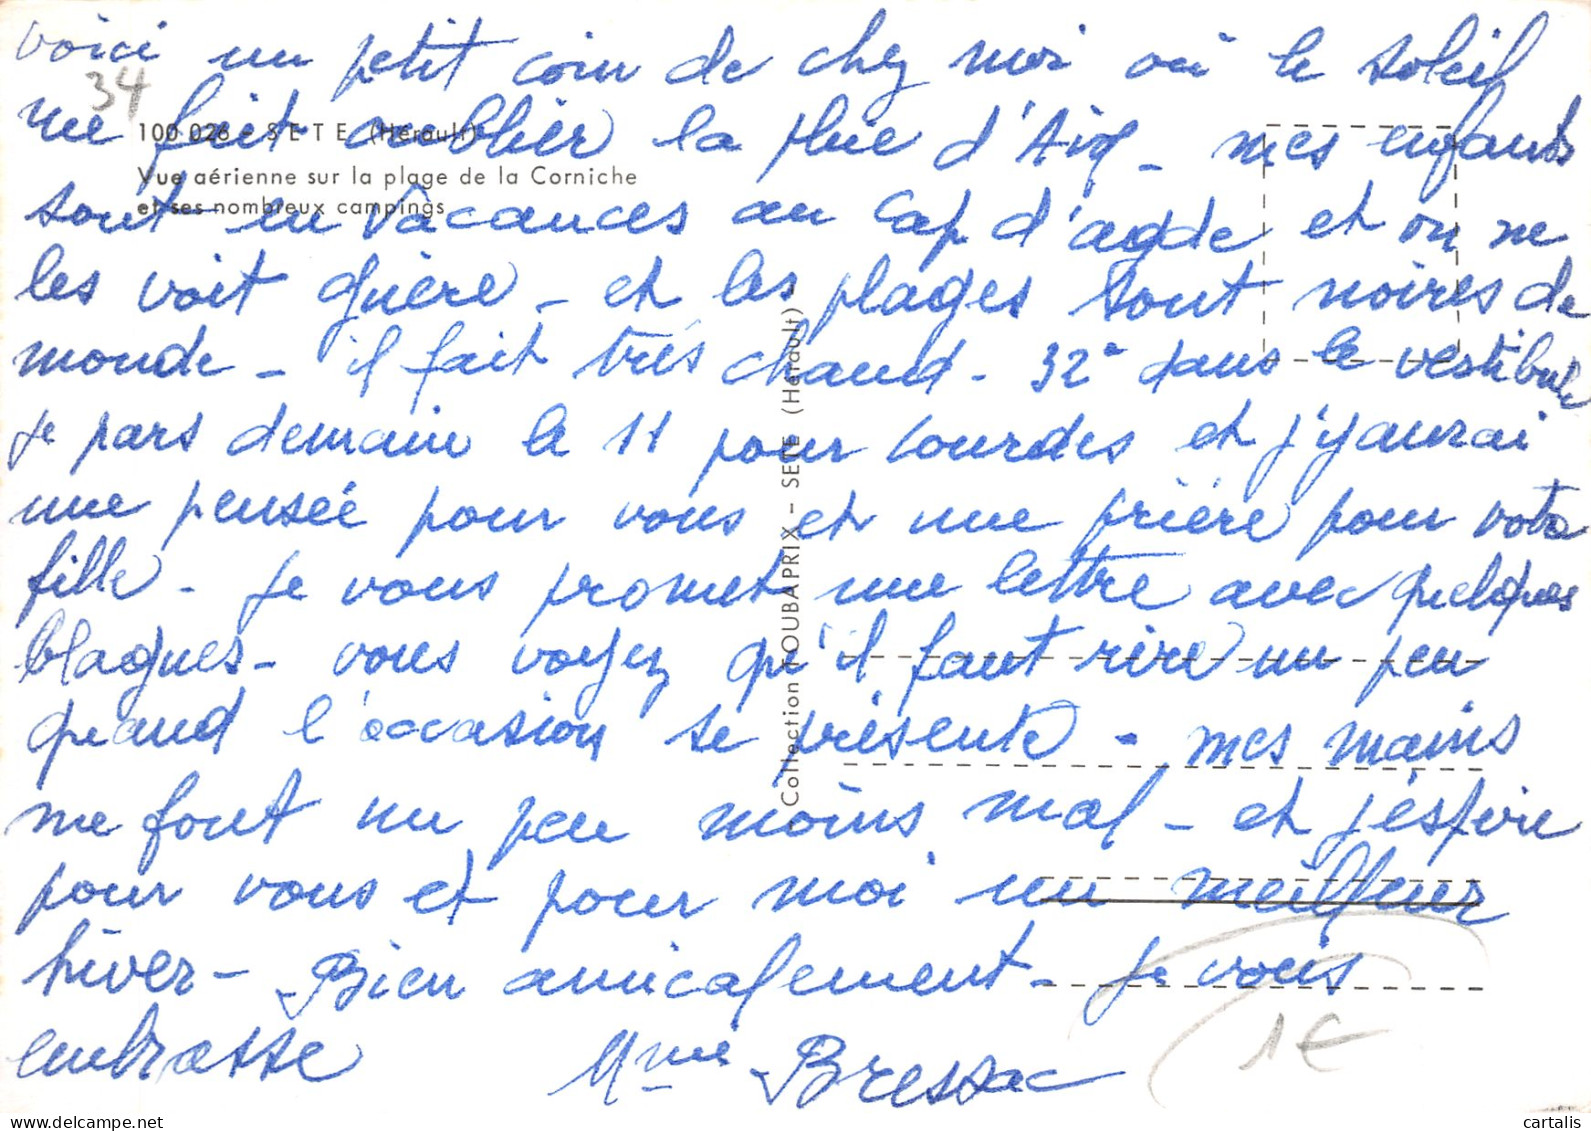 voici un petit coin de chez moi où le soleil
34
me fait oublier la pluie d'Aix - mes enfants
100 026 - SETE (Hérault)
Vue aérienne sur la plage de la Corniche
et ses nombreux campings
sont en vacances au cap d'agde et on ne
les voit guère - et les plages sont noires de
monde - il fait très chaud - 32° dans le vestibule
je pars demain le 11 pour Lourdes et j'y aurai
une pensée pour vous et une prière pour votre
fille - Je vous promet une lettre avec quelques
blagues - vous voyez qu'il faut rire un peu
quand l'occasion se présente - mes mains
me font un peu moins mal - et j'éspère
pour vous et pour moi un meilleur
hiver - Bien amicalement - je vous
embrasse Mme Bressac
Collection TOUBAPRIX - SETE (Hérault)
1€
cartalis